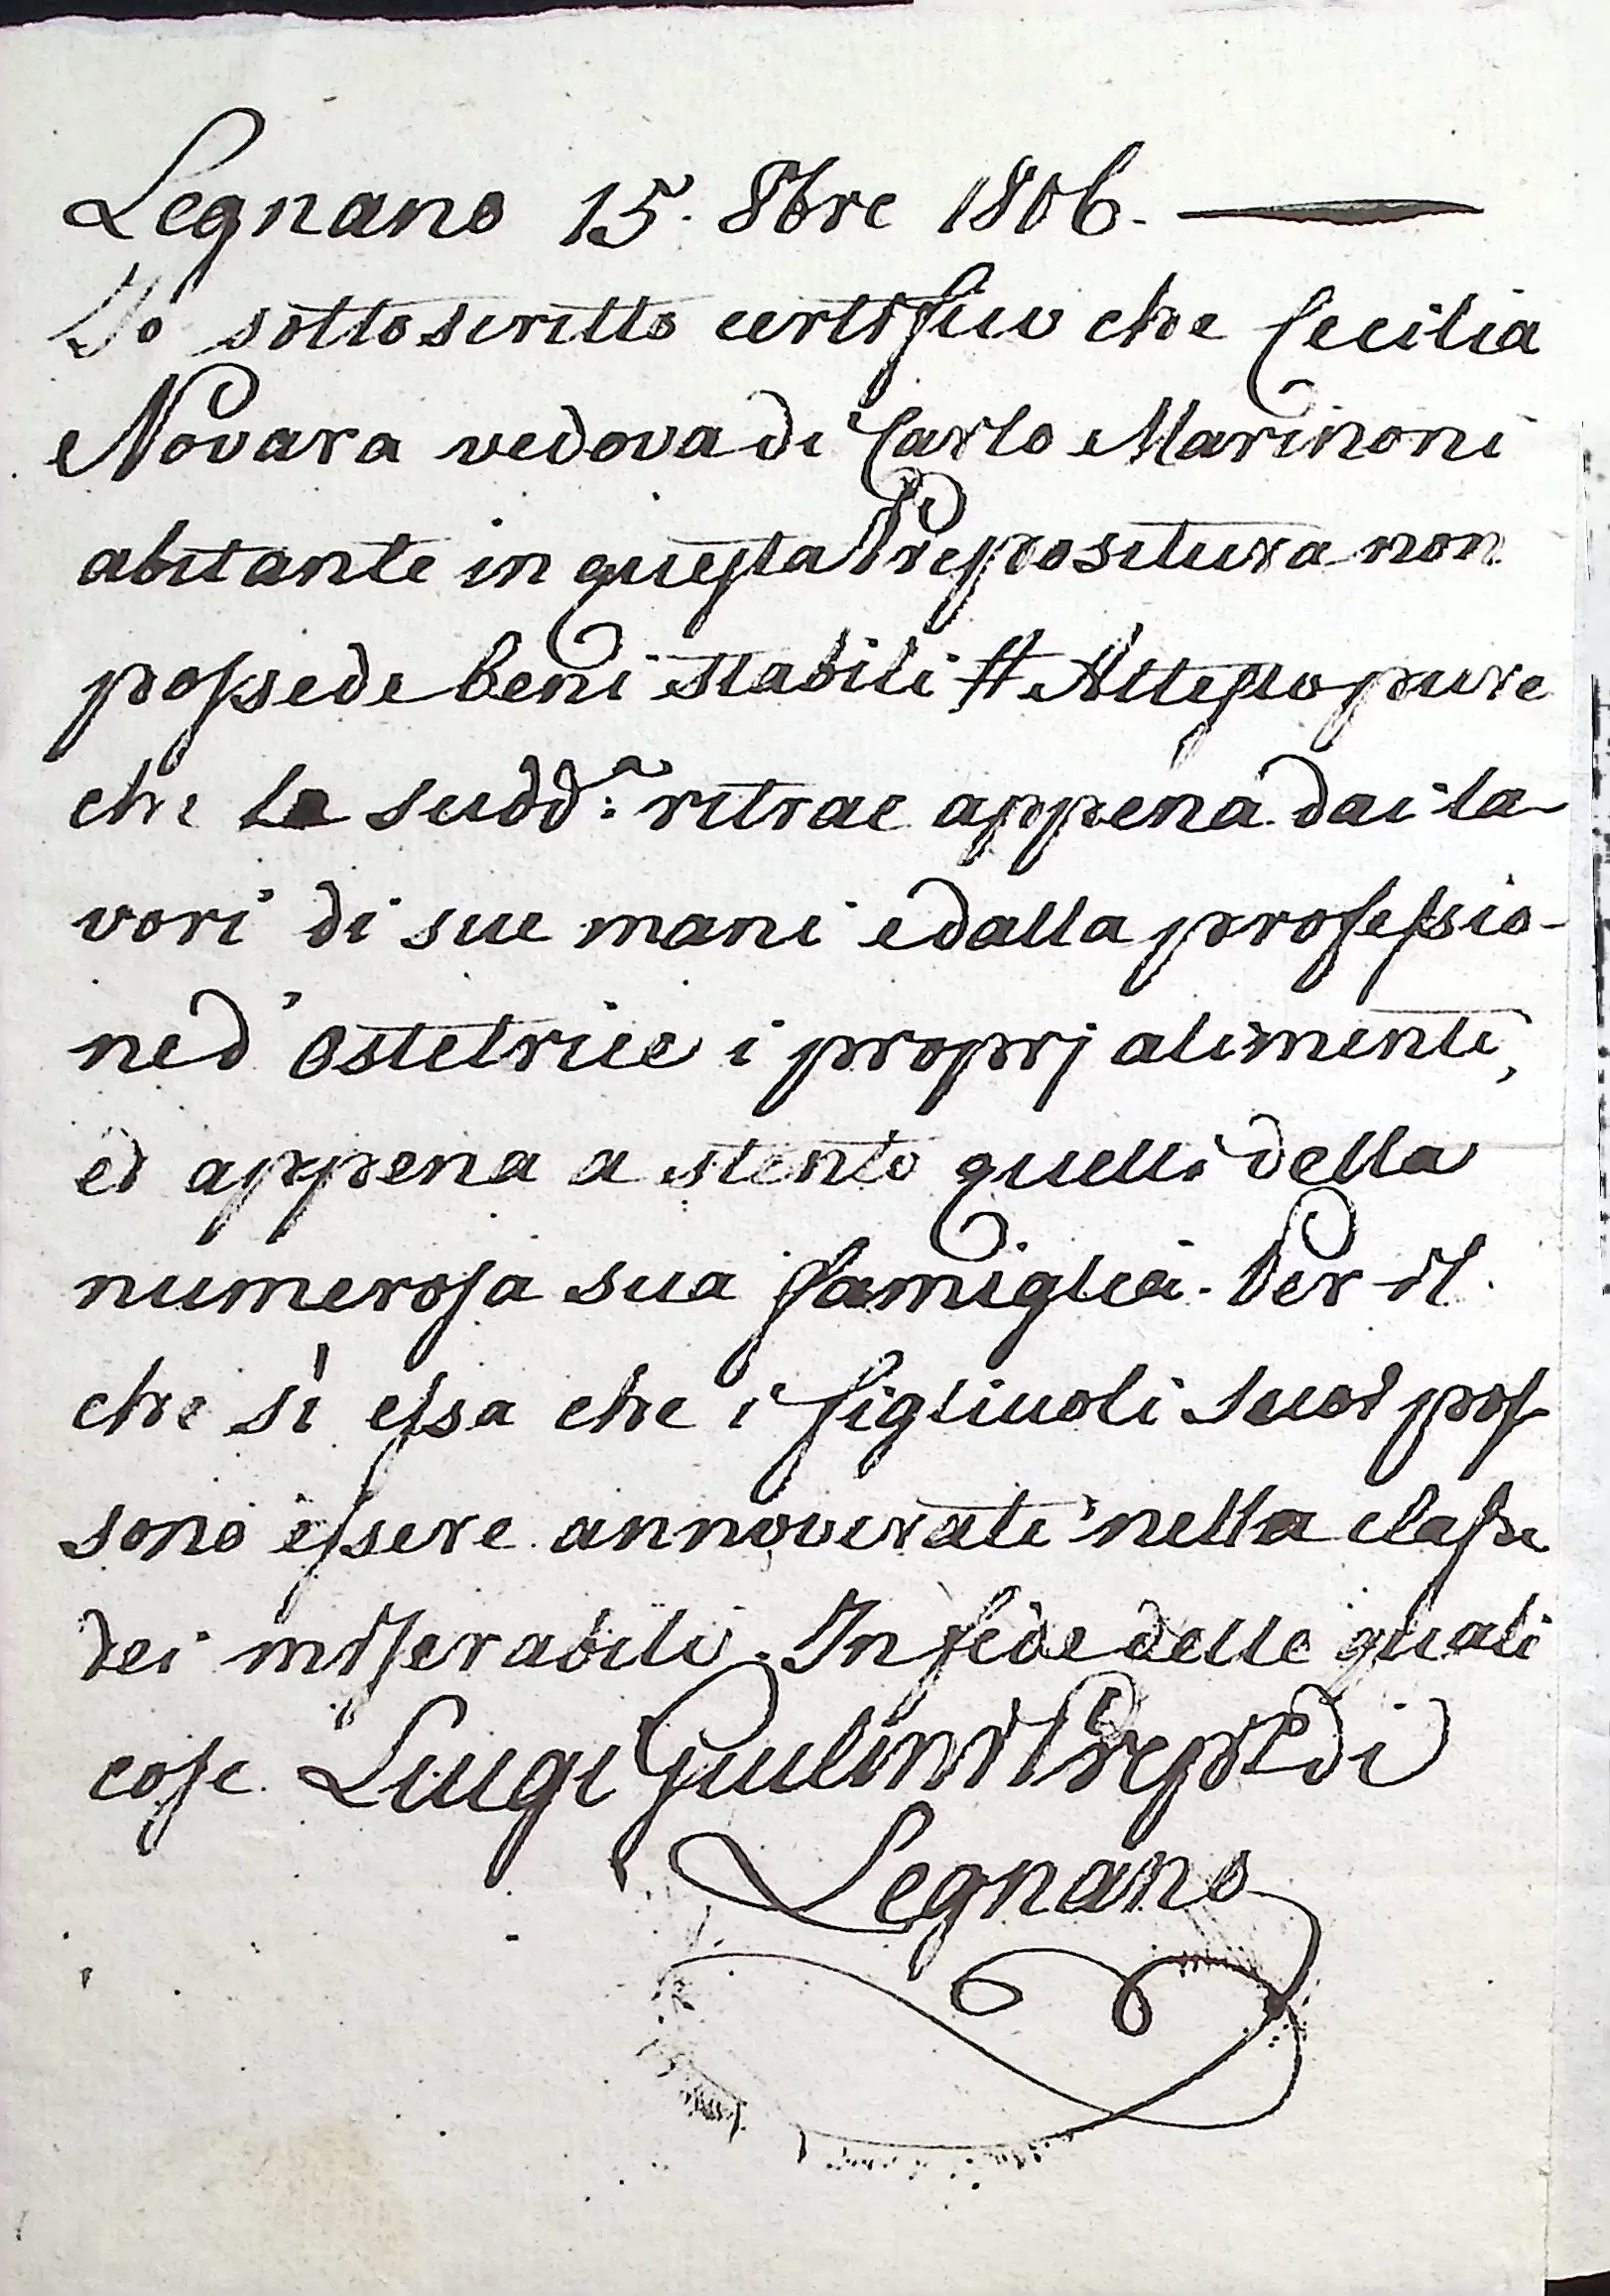 Legnano 15. 8bre 1806.
Io sottoscritto certifico che Cecilia
Novara vedova di Carlo Marinoni
abitante in questa Prepositura non
possede beni stabili # Attesto pure
che la sudd:a ritrae appena dai la-
vori di sue mani e dalla professio-
ne d'Ostetrice i proprj alimenti,
ed appena a stento quelli della
numerosa sua famiglia. Per il
che sì essa che i figliuoli suoi pos
sono essere annoverati nella classe
dei miserabili. In fede delle quali
cose Luigi Giulini Prepto di
Legnano